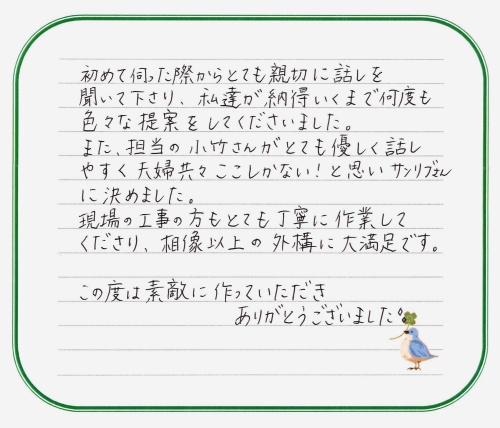 初めて伺った際からとても親切に話しを
聞いて下さり、私達が納得いくまで何度も
色々な提案をしてくださいました。
また、担当の小竹さんがとても優しく話し
やすく夫婦共々ここしかない！と思いサンリブさん
に決めました。
現場の工事の方もとても丁寧に作業して
くださり、相像以上の外構に大満足です。
この度は素敵に作っていただき
ありがとうございました。